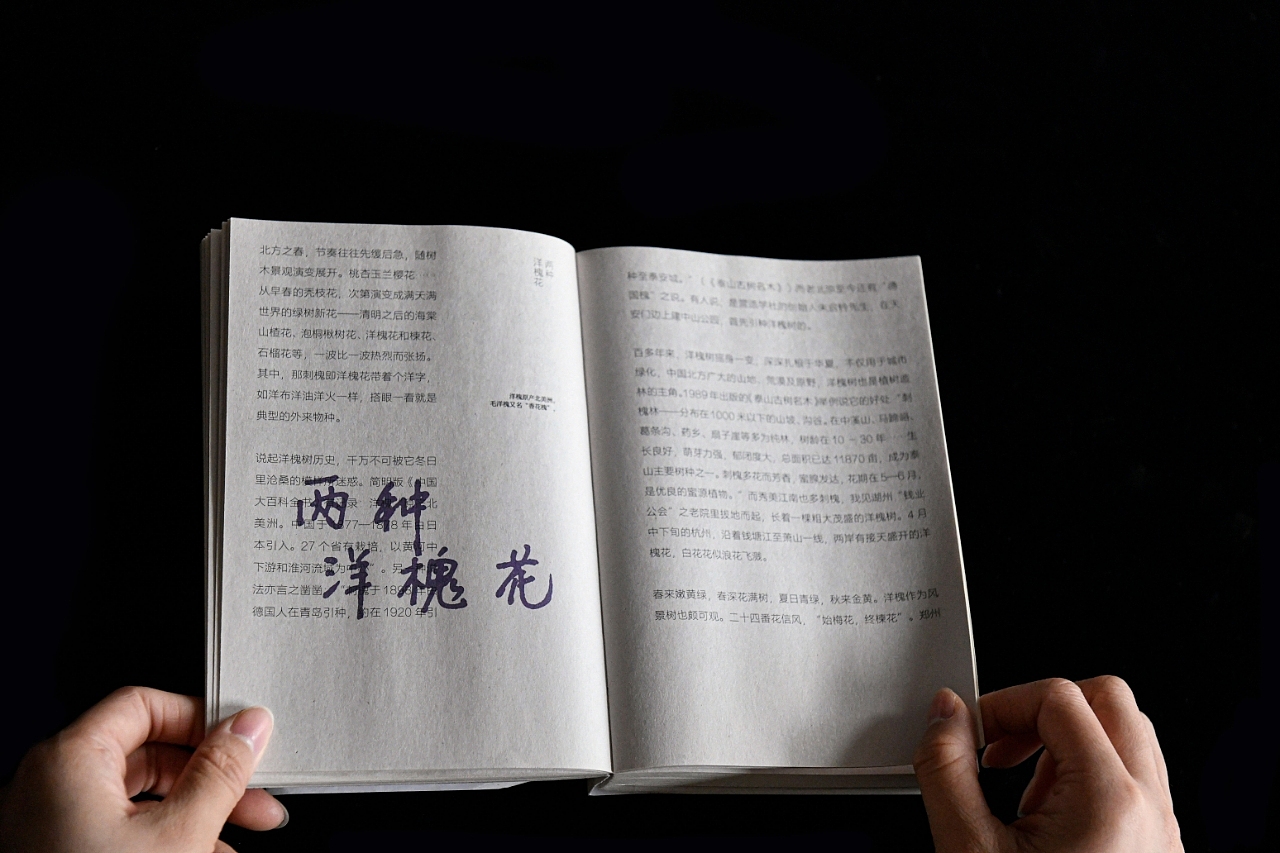 北方之春，节奏往往先缓后急，随树
木景观演变展开。桃杏玉兰樱花……
从早春的秃枝花，次第演变成满天满
世界的绿树新花——清明之后的海棠
山楂花、泡桐楸树花、洋槐花和楝花、
石榴花等，一波比一波热烈而张扬。
其中，那刺槐即洋槐花带着个洋字，
如洋布洋油洋火一样，搭眼一看就是
典型的外来物种。
说起洋槐树历史，千万不可被它冬日
里沧桑的模样所迷惑。简明版《中国
大百科全书 录 洋 北
美洲。中国于1877—1878年由日
本引入。27个省有栽培，以黄河中
下游和淮河流域为中 。另一种
法亦言之凿凿， 于1898年
德国人在青岛引种，约在1920年引
两种
洋槐花
两种
洋槐花
洋槐原产北美洲，
毛洋槐又名“香花槐”。
种至泰安城。”（《泰山古树名木》）而老北京至今还有“德
国槐”之说。有人说，是营造学社的创始人朱启钤先生，在天
安门边上建中山公园，首先引种洋槐树的。
百多年来，洋槐树摇身一变，深深扎根于华夏。不仅用于城市
绿化，中国北方广大的山地、荒漠及原野，洋槐树也是植树造
林的主角。1989年出版的《泰山古树名木》举例说它的好处：“刺
槐林——分布在1000米以下的山坡、沟谷。在中溪山、马蹄峪、
葛条沟、药乡、扇子崖等多为纯林，树龄在10－30年……生
长良好，萌芽力强，郁闭度大，总面积已达11870亩，成为泰
山主要树种之一。刺槐多花而芳香，蜜腺发达，花期在5—6月，
是优良的蜜源植物。”而秀美江南也多刺槐，我见湖州“钱业
公会”之老院里拔地而起，长着一棵粗大茂盛的洋槐树。4月
中下旬的杭州，沿着钱塘江至萧山一线，两岸有接天盛开的洋
槐花，白花花似浪花飞溅。
春来嫩黄绿，春深花满树，夏日青绿，秋来金黄。洋槐作为风
景树也颇可观。二十四番花信风，“始梅花，终楝花”。郑州